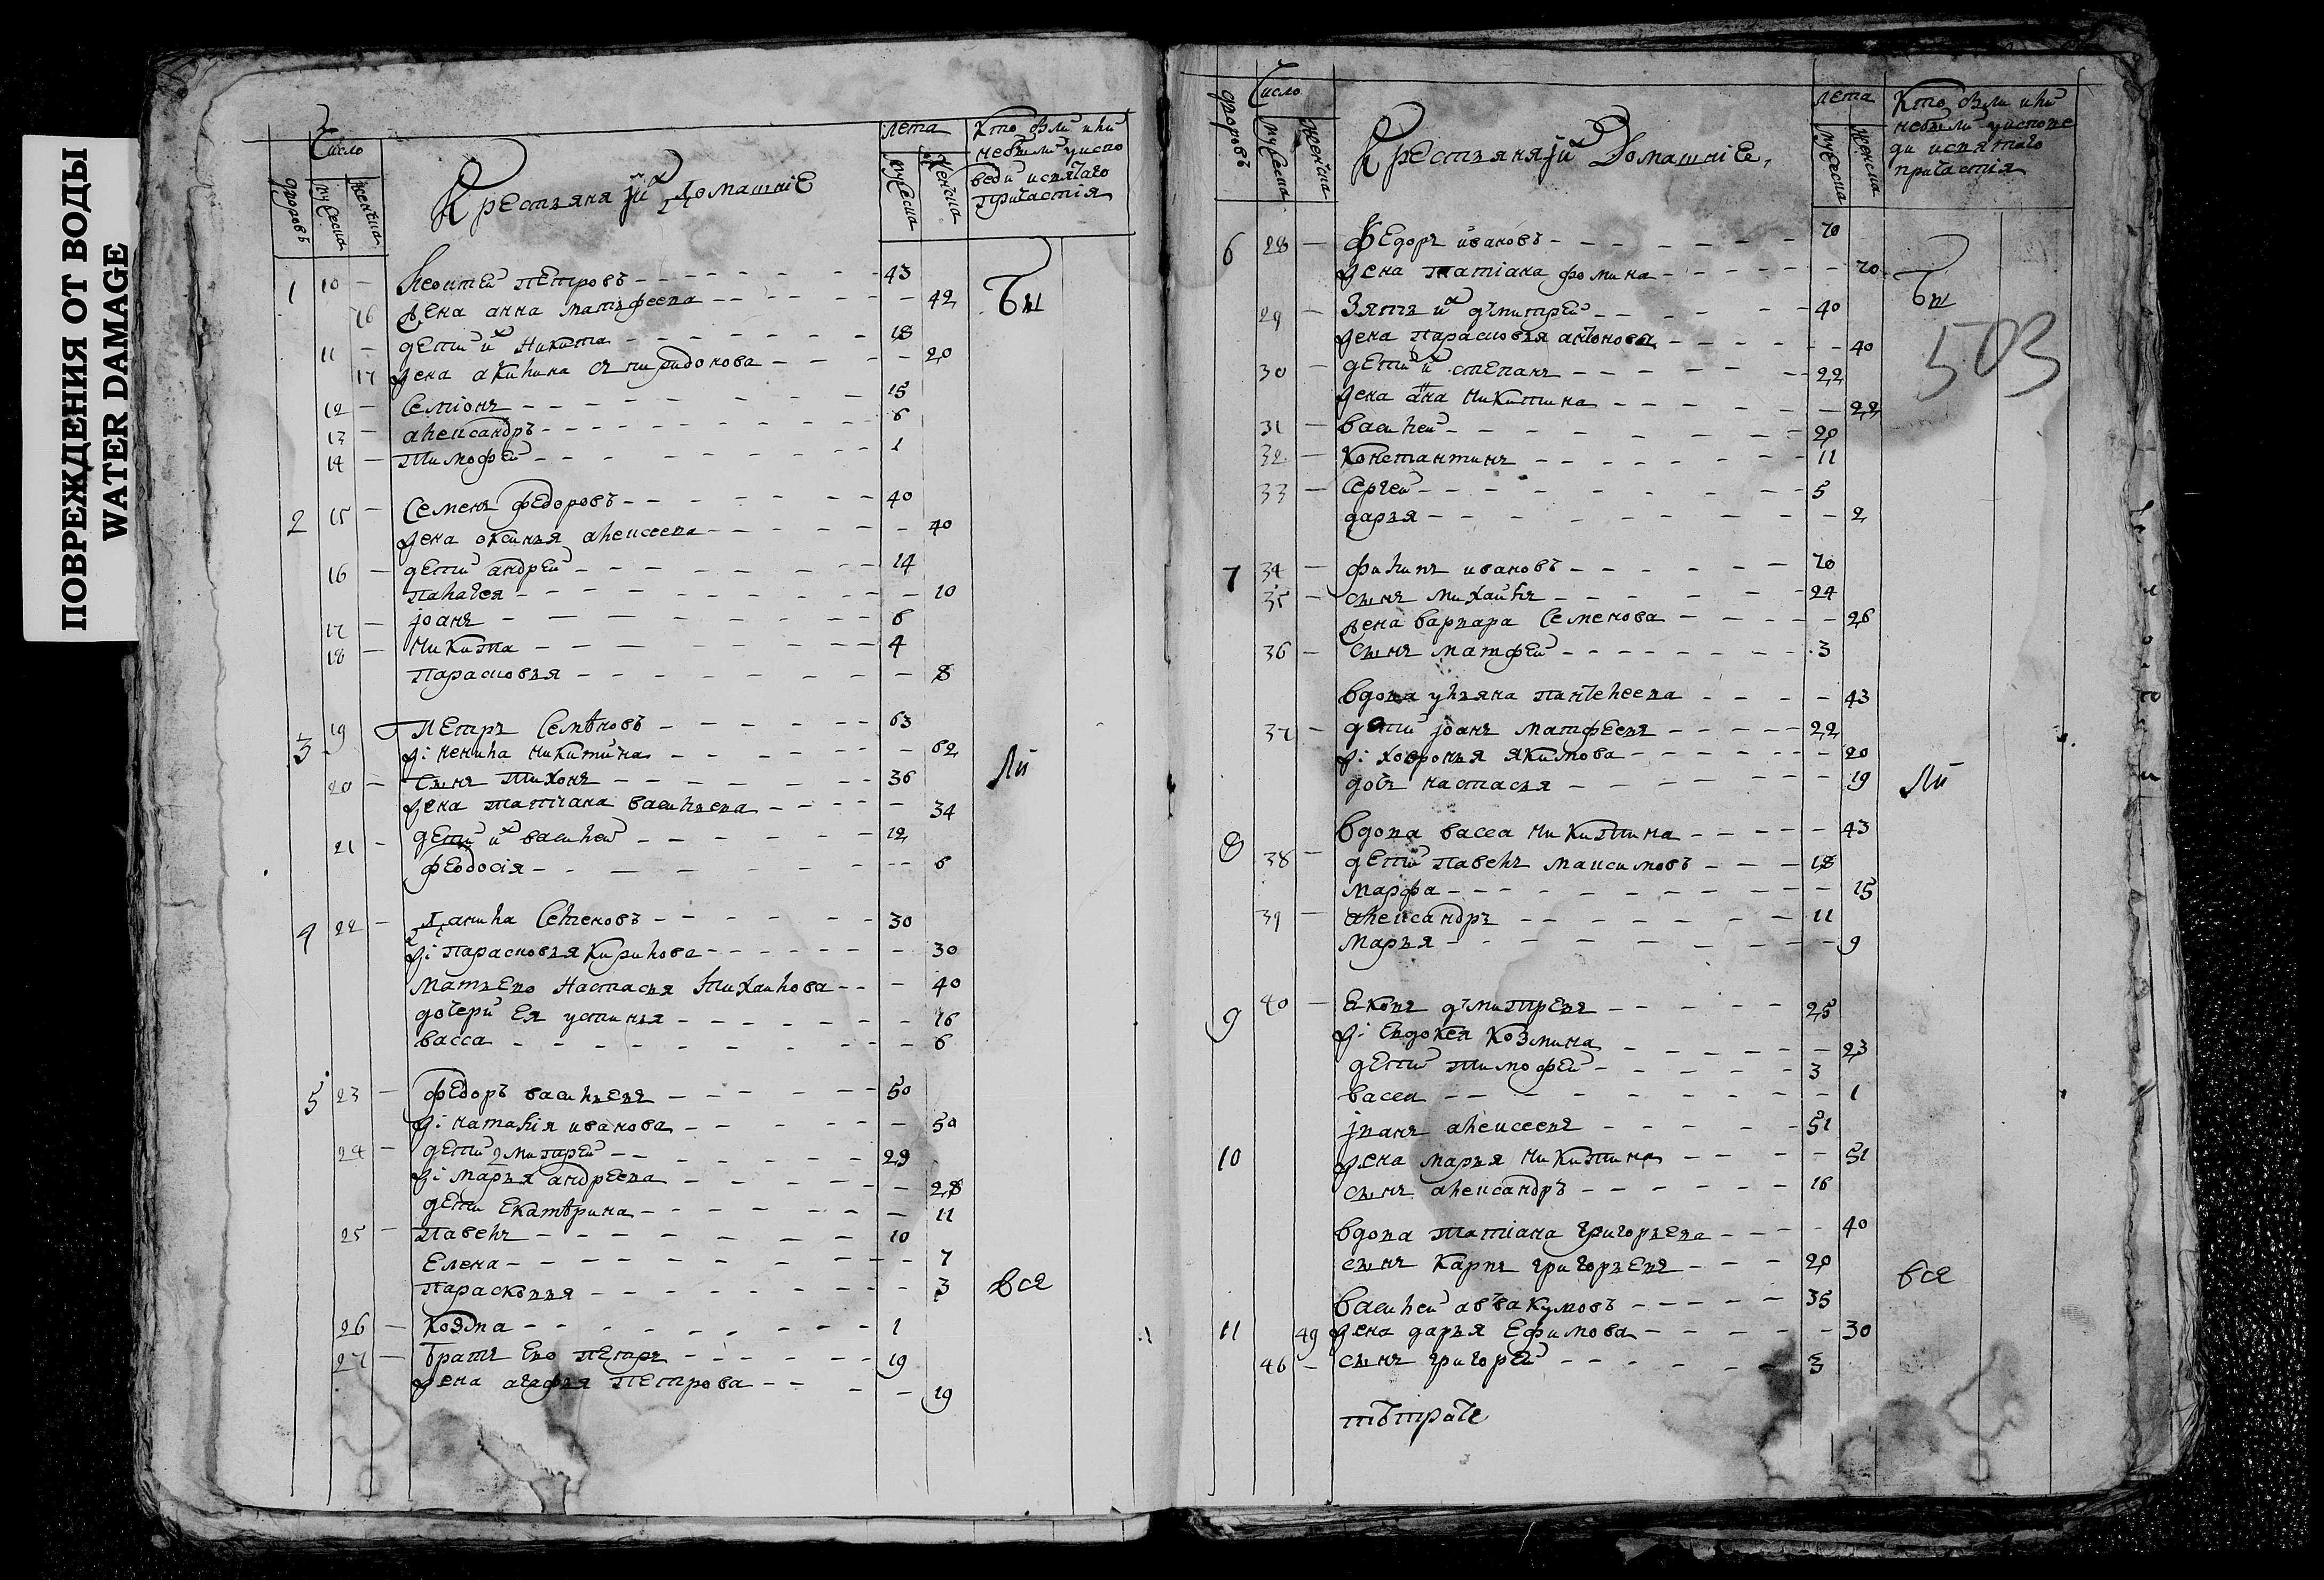 ПОВРЕЖДЕНИЯ ОТ ВОДЫ
WATER DAMAGE
Число
дворовъ
мужеска
женска
Крестьяня и их домашние
лета
мужеска
женска
Кто были или
небыли у испо
веди и святаго
причастия
1 10 — петровъ — 43
16 жена анна матвфеева — 42
Бы
11 — дети их Никита — 18
17 жена акилина спиридонова — 20
12 — Семионъ — 15
13 — алеѯандръ — 6
14 — Тимофеи — 1
2 15 — Семенъ федоровъ — 40
жена оксинья алеѯеева — 40
16 — дети андреи — 14
палагея — 10
17 — јоанъ — 6
18 — Никита — 4
парасковья — 8
3 19 петръ Семѣновъ — 63
ж: ненила никитина — 62
ли
20 — сынъ тихонъ — 36
жена татиана васильева — 34
21 — дети их василеи — 12
феодосія — 6
4 22 — данила Семеновъ — 30
ж: парасковья кирилова — 30
матьево настасья михаилова — 40
дочери ея устинья — 16
васса — 6
5 23 — федоръ васильевъ — 50
ж: наталія иванова — 50
24 — дети дмитреи — 29
ж: марья андреева — 28
дети екатѣрина — 11
25 — павелъ — 10
елена — 7
парасковья — 3
все
26 — козма — 1
27 — братъ ево петръ — 19
жена агафья петрова — 19
Число
дворовъ
мужеска
женска
Крестьяня и их домашние
лета
мужеска
женска
Кто были или
небыли у испове
ди и святаго
причастия
6 28 — федоръ ивановъ — 70
жена татіана фомина — 70
Бы
29 — зять их дмитреи — 40
жена парасковья антонова — 40
503
30 — дети их степанъ — 22
жена анна никитина — 22
31 — василеи — 20
32 — константинъ — 11
33 — сергеи — 5
дарья — 2
7 34 — филипъ ивановъ — 70
35 — сынъ михаилъ — 24
жена варвара семенова — 26
36 — сынъ матфеи — 3
вдова ульяна пантелеева — 43
37 — дети јоанъ матфеевъ — 22
ж: ховронья якимова — 20
дочь настасья — 19
ли
8 вдова васса никитина — 43
38 — дети павелъ маѯимовъ — 18
марфа — 15
39 — алеѯандръ — 11
марья — 9
9 40 — дмитревъ — 25
ж: евдокея козмина — 23
дети тимофеи — 3
васеи — 1
јванъ алеѯеевъ — 51
10 жена марья никитина — 51
сынъ алеѯандръ — 16
вдова татіана григорьева — 40
сынъ карпъ григорьевъ — 20
все
василеи аввакумовъ — 35
11 49 жена дарья ефимова — 30
46 — сынъ григореи — 3